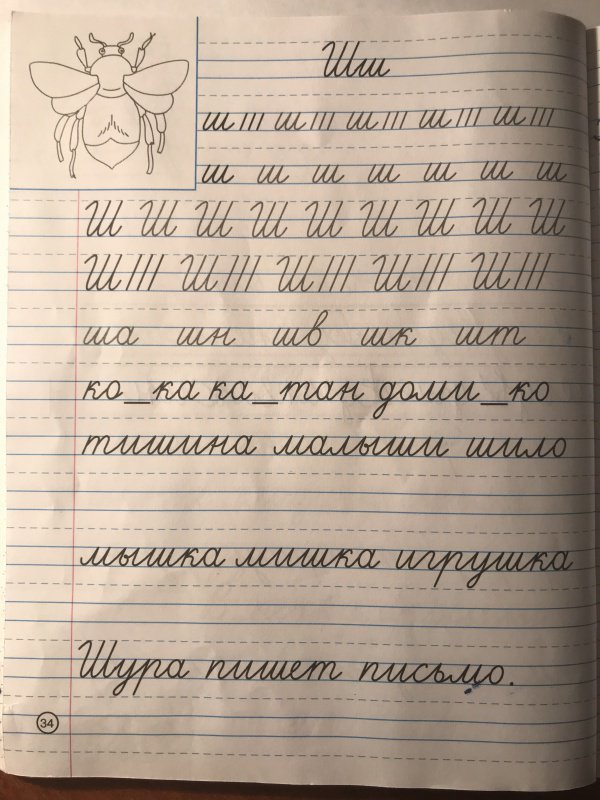 Шш
ш ш ш ш ш
ш ш ш ш ш ш ш
Ш Ш Ш Ш Ш Ш Ш Ш Ш
Ш Ш Ш Ш Ш
ша шн шв шк шт
ко_ка ка_тан доми_ко
тишина малыши шило
мышка мишка игрушка
Шура пишет письмо.
34